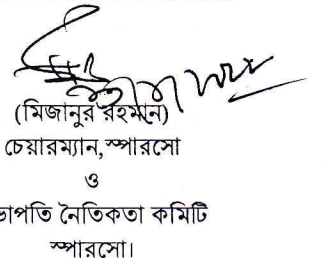 (মিজানুর রহমান)
চেয়ারম্যান, স্পারসো
ও
ভাপতি নৈতিকতা কমিটি
স্পারসো।